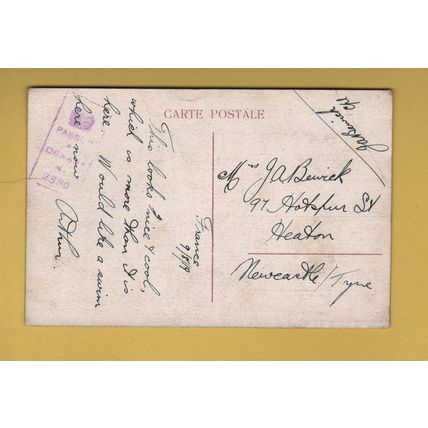 CARTE POSTALE
France
9/8/19
This looks nice & cool,
which is more than it is
here. Would like a swim
here now
Arthur.
Mrs J A Bewick
97 Hotspur St
Heaton
Newcastle/Tyne
PASS
2980